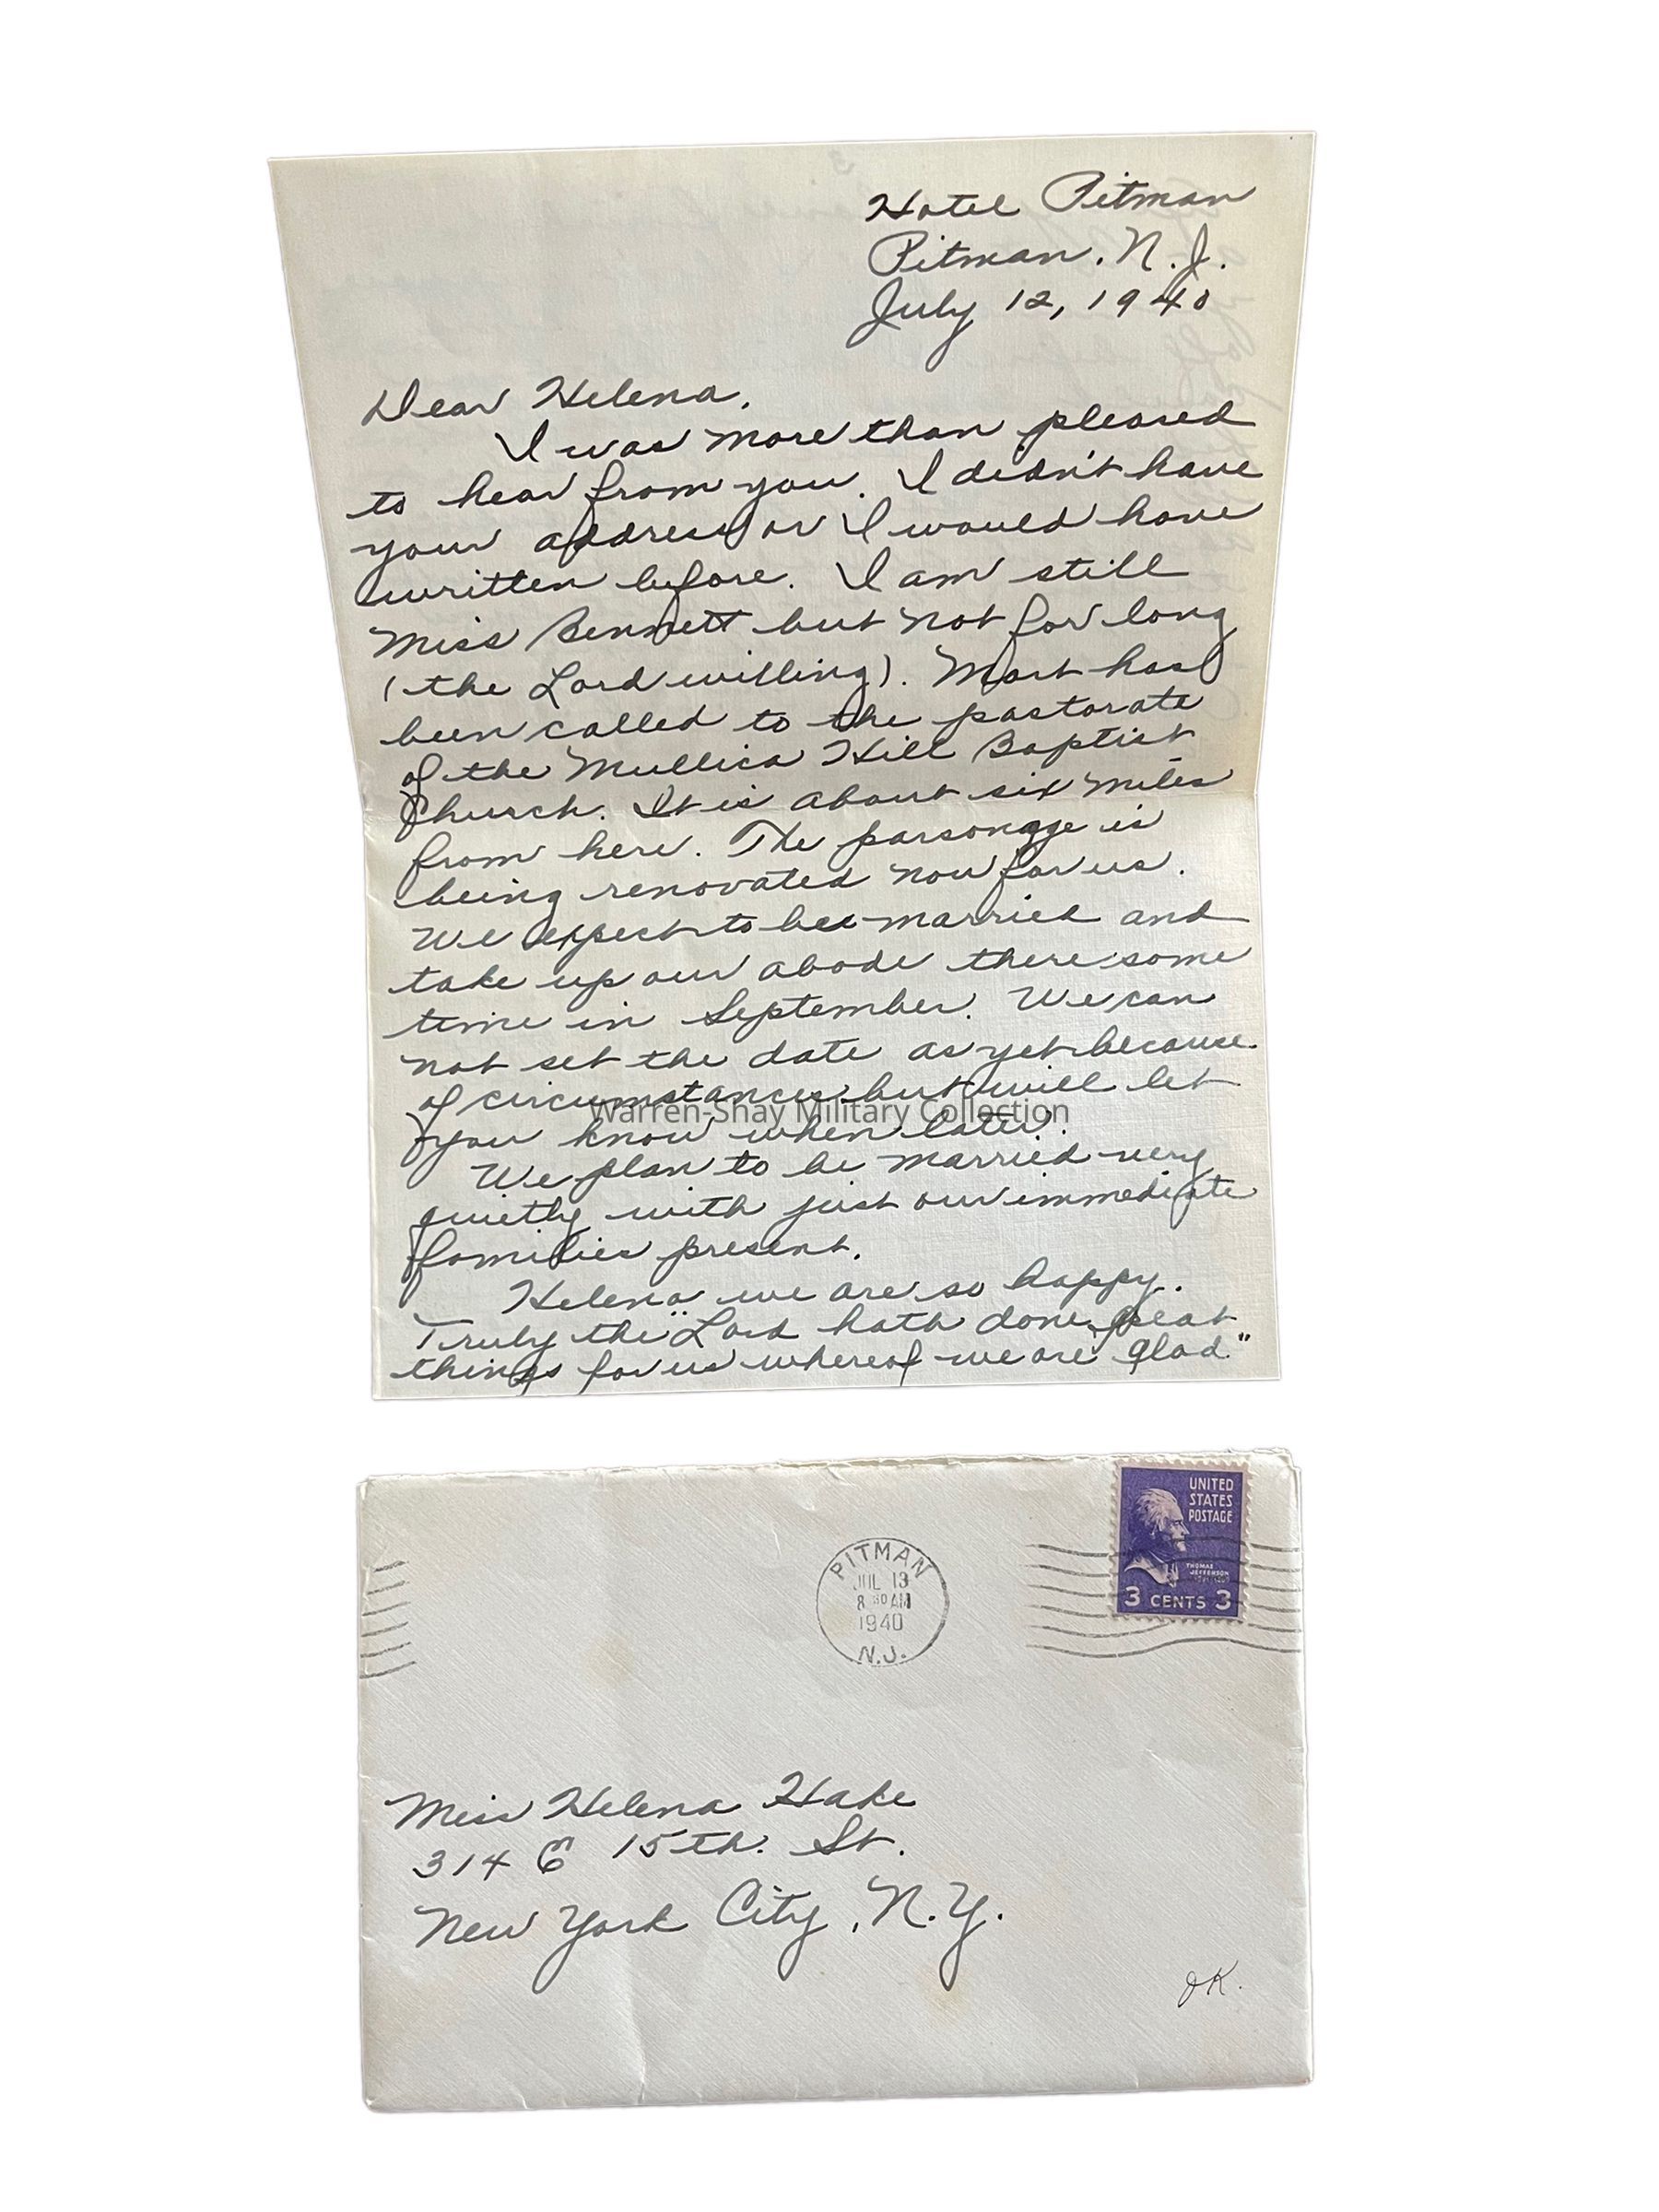 Hotel Pitman
Pitman, N.J.
July 12, 1940
Dear Helena,
I was more than pleased
to hear from you. I didn't have
your address or I would have
written before. I am still
Miss Bennett but not for long
(the Lord willing). Mort has
been called to the pastorate
of the Mullica Hill Baptist
Church. It is about six miles
from here. The parsonage is
being renovated now for us.
We expect to be married and
take up our abode there some
time in September. We can
not set the date as yet because
of circumstances but will let
Warren-Shay Military Collection
you know when later.
We plan to be married very
quietly with just our immediate
families present.
Helena we are so happy.
Truly the "Lord hath done great
things for us whereof we are glad."
UNITED
STATES
POSTAGE
THOMAS
JEFFERSON
3 CENTS 3
PITMAN
JUL 13
8 30 AM
1940
N.J.
Miss Helena Hake
314 E 15th. St.
New York City, N.Y.
OK.